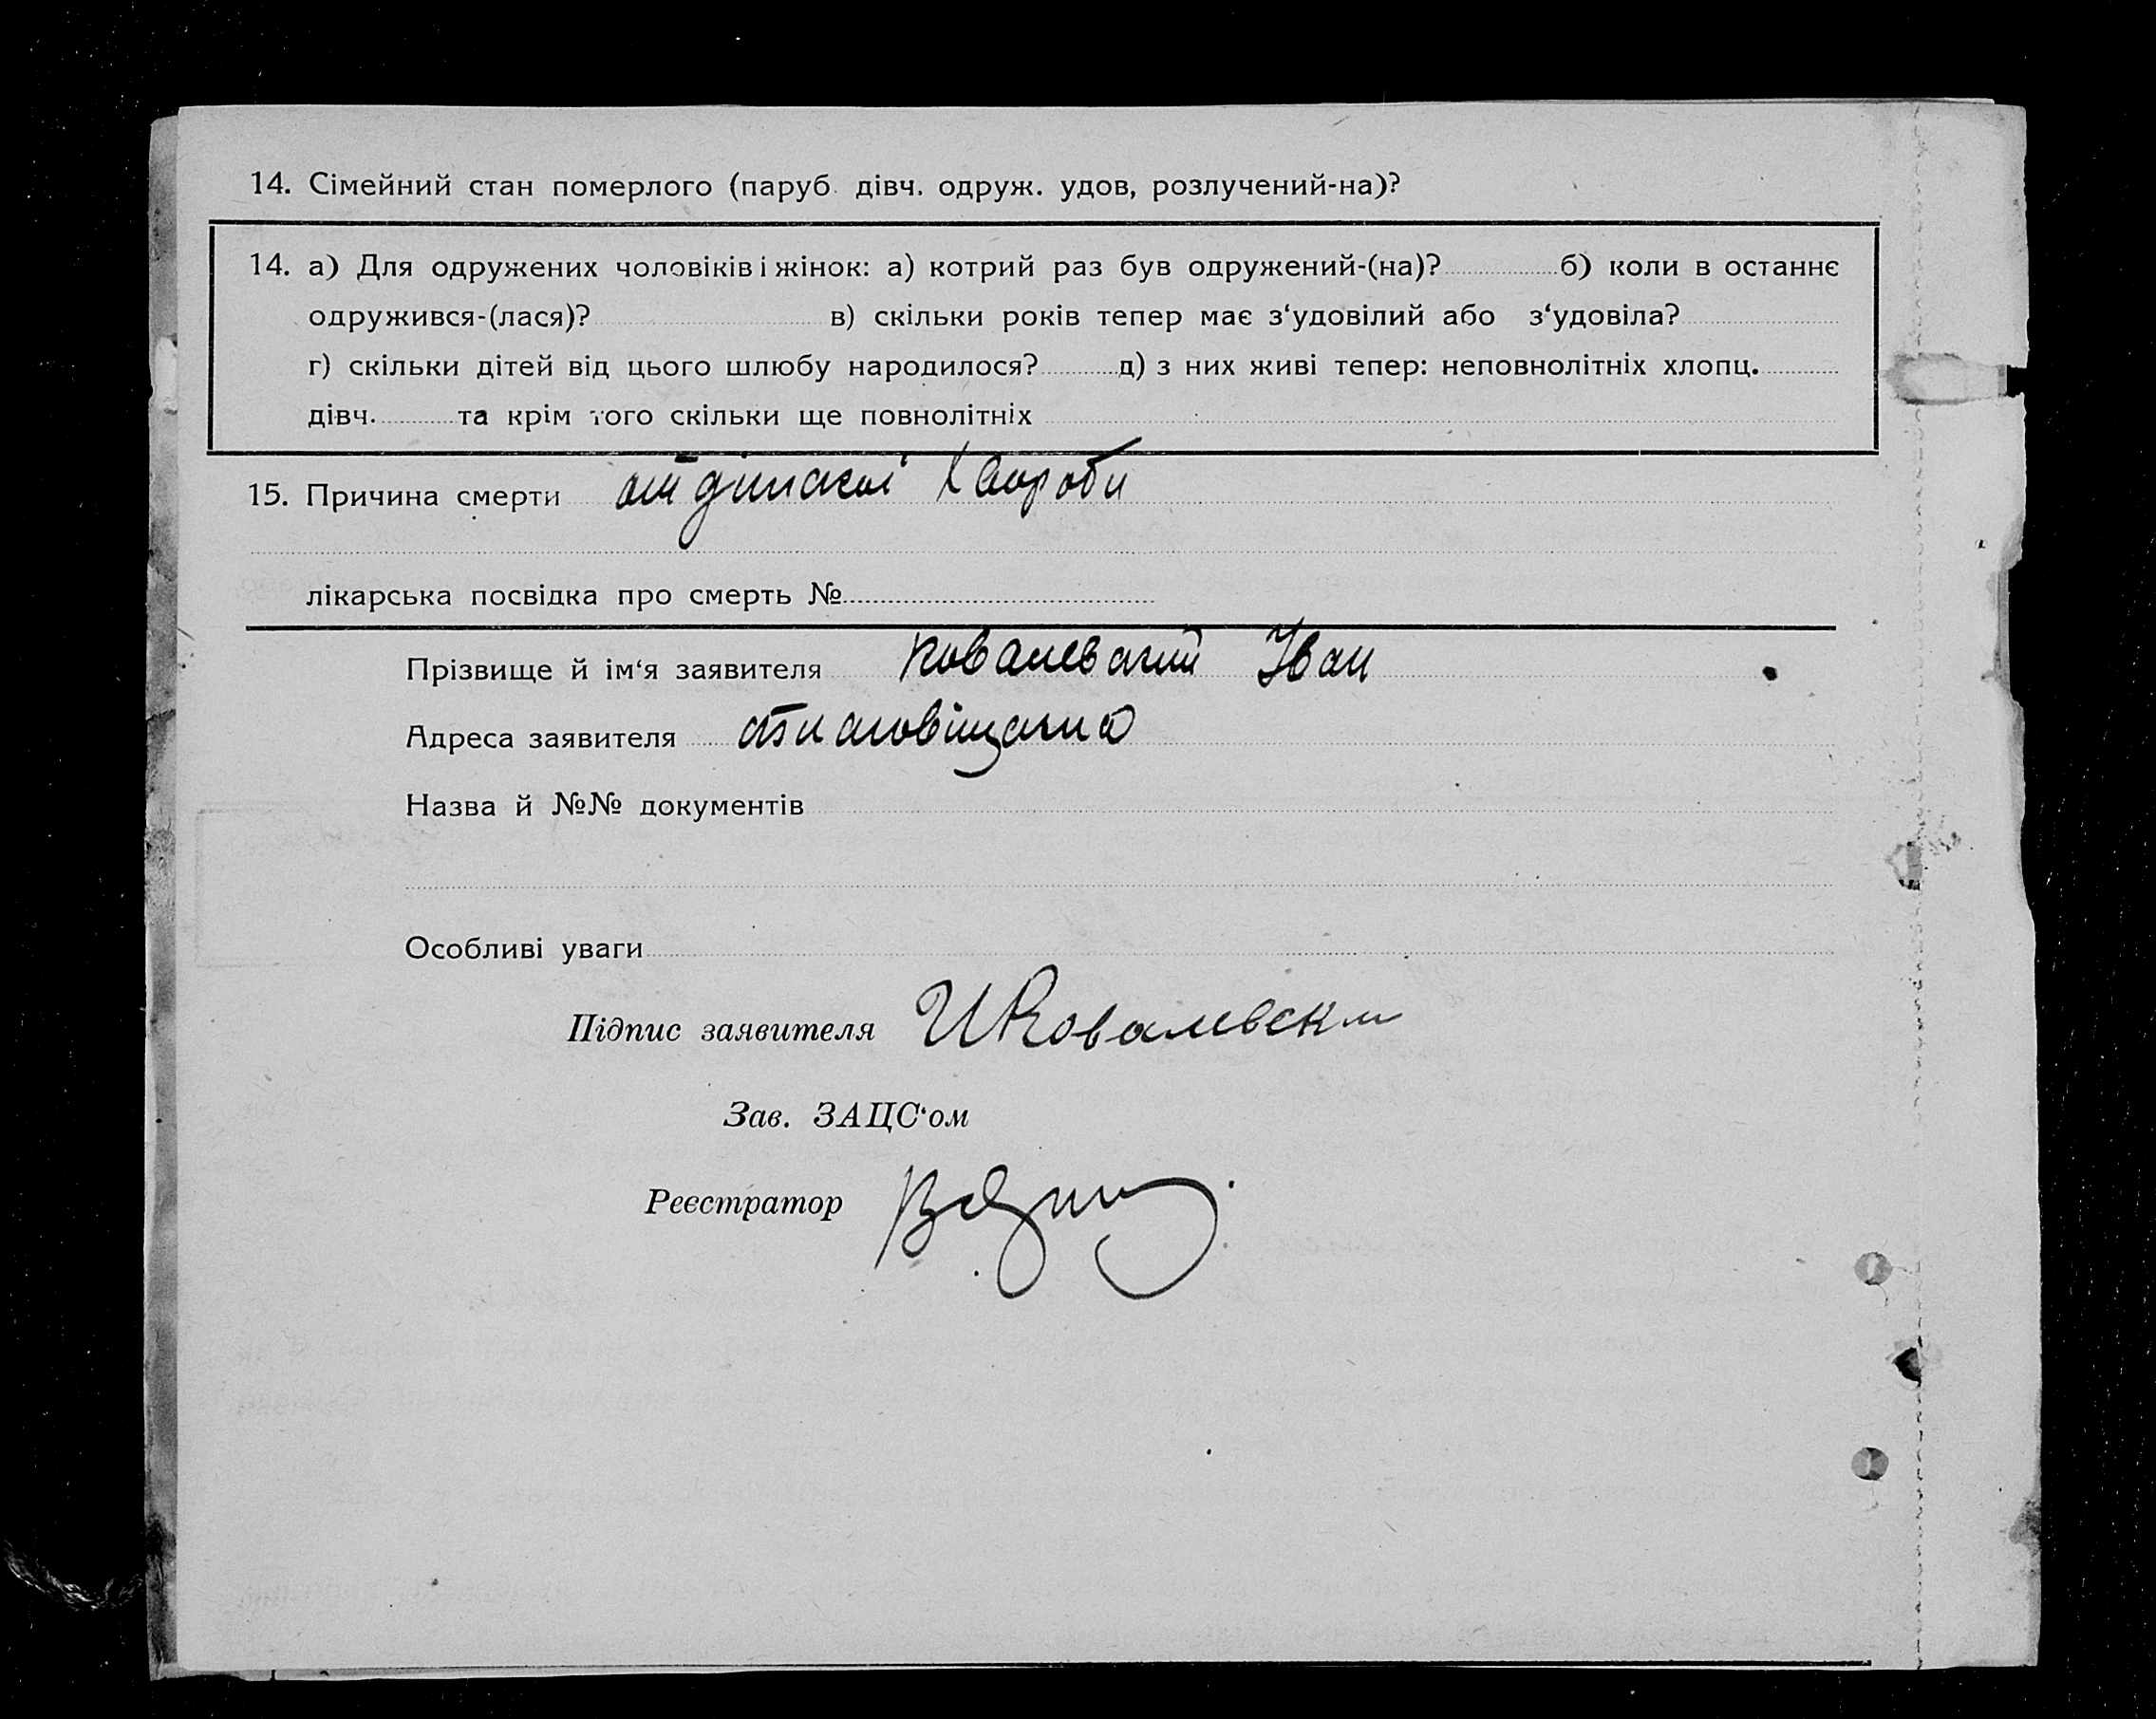 14. Сімейний стан померлого (паруб. дівч. одруж. удов, розлучений-на)?
14. а) Для одружених чоловіків і жінок: а) котрий раз був одружений-(на)? б) коли в останнє
одружився-(лася)? в) скільки років тепер має з‘удовілий або з‘удовіла?
г) скільки дітей від цього шлюбу народилося? д) з них живі тепер: неповнолітніх хлопц.
дівч. та крім того скільки ще повнолітніх
15. Причина смерти от дітскої Хвороби
лікарська посвідка про смерть №
Прізвище й ім‘я заявителя Ковалевский Іван
Адреса заявителя
Назва й №№ документів
Особливі уваги
Підпис заявителя ИКовалевски
Зав. ЗАЦС‘ом
Реєстратор